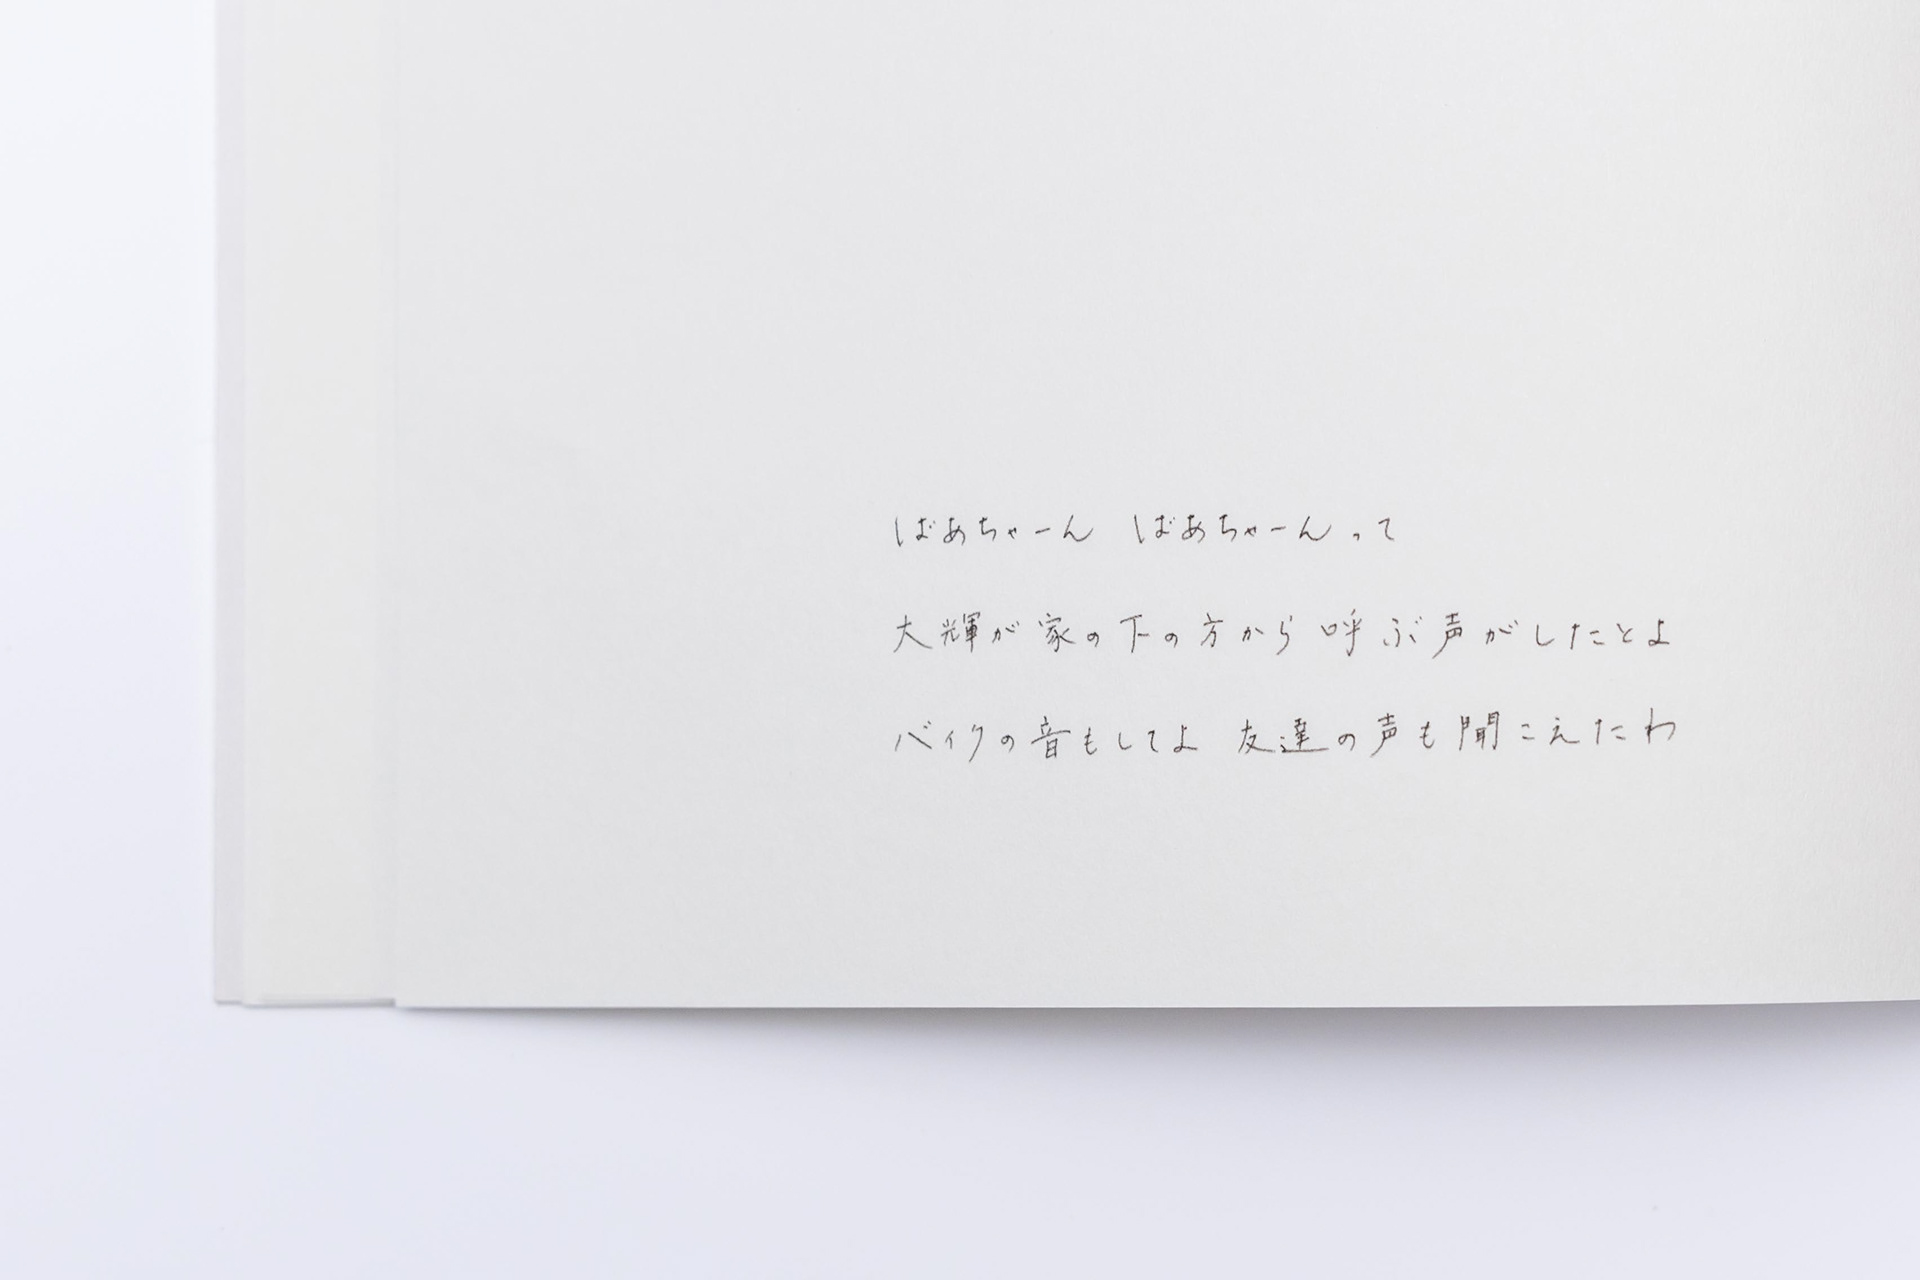 ばあちゃーん ばあちゃーんって
大輝が家の下の方から呼ぶ声がしたとよ
バイクの音もしてよ 友達の声も聞こえたわ